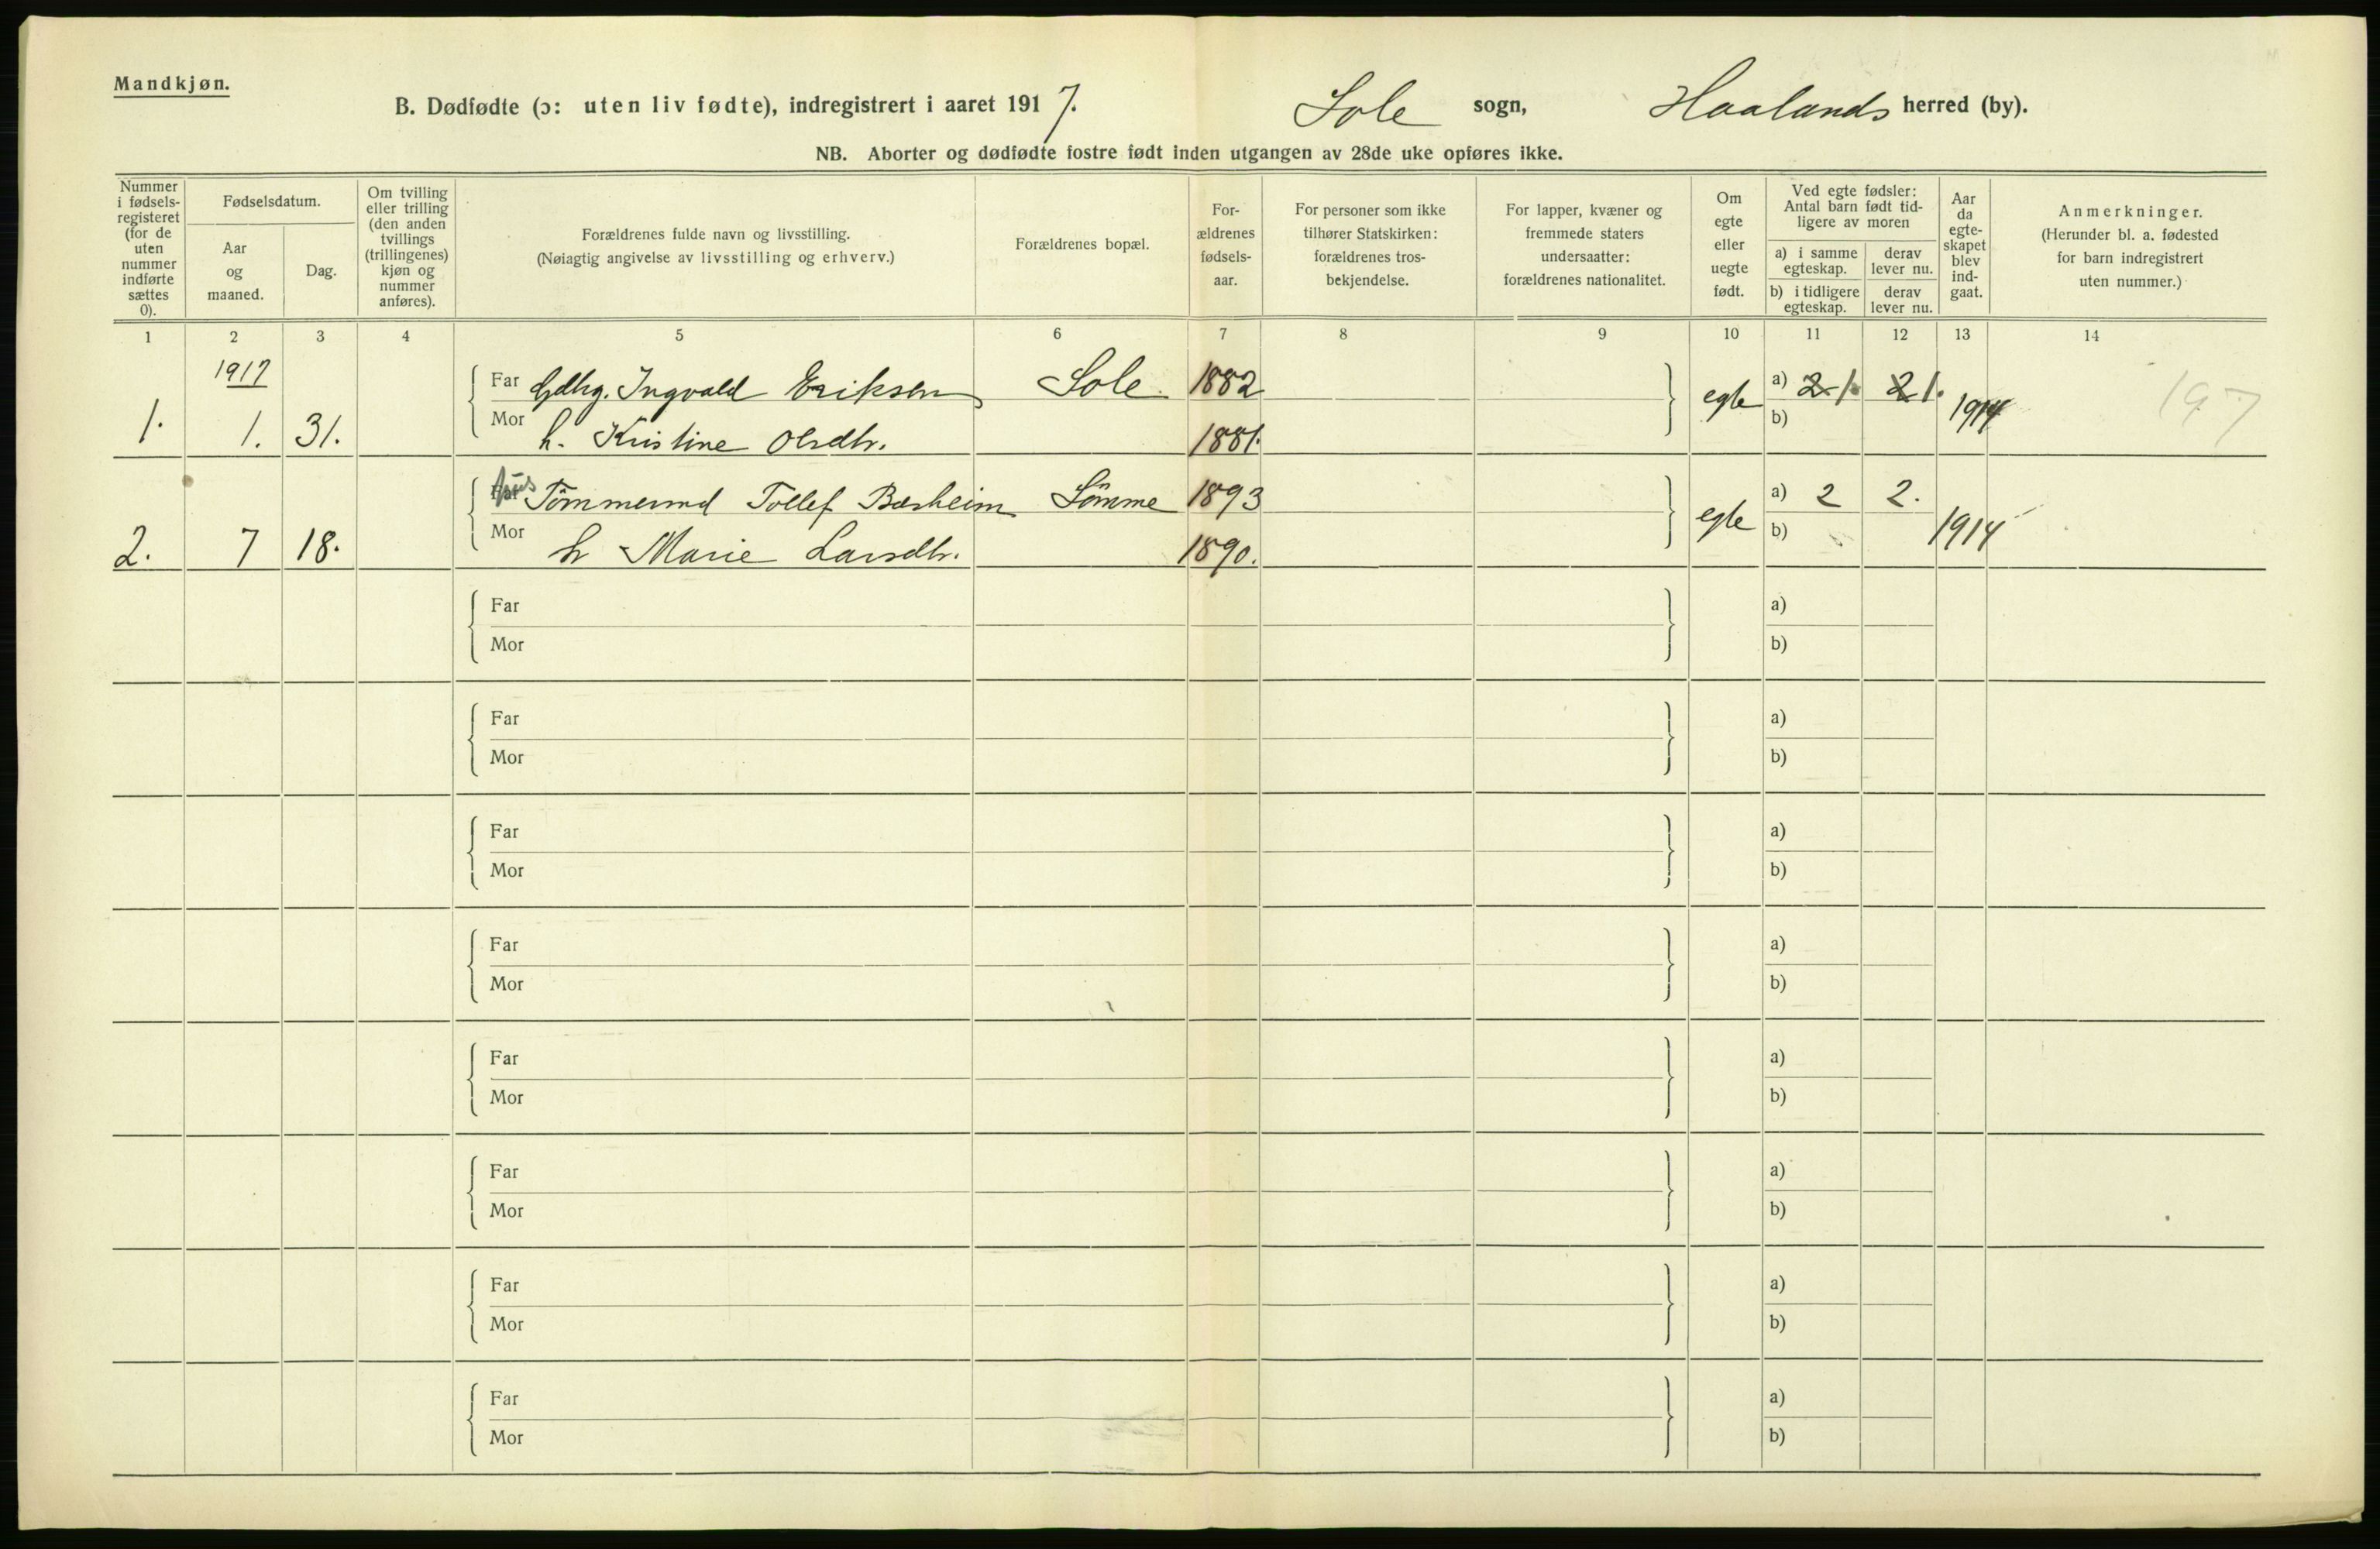 Mandkjøn.
B. Dødfødte (ɔ: uten liv fødte), indregistrert i aaret 1917. Sole sogn, Haalands herred (by).
NB. Aborter og dødfødte fostre født inden utgangen av 28de uke opføres ikke.
Nummer i fødsels-registeret (for de uten nummer indførte sættes 0).
Fødselsdatum.
Aar og maaned.
Dag.
Om tvilling eller trilling (den anden tvillings (trillingenes) kjøn og nummer anføres).
Forældrenes fulde navn og livsstilling.
(Nøiagtig angivelse av livsstilling og erhverv.)
Forældrenes bopæl.
For-ældrenes fødsels-aar.
For personer som ikke tilhører Statskirken: forældrenes tros-bekjendelse.
For lapper, kvæner og fremmede staters undersaatter: forældrenes nationalitet.
Om egte eller uegte født.
Ved egte fødsler: Antal barn født tid-ligere av moren
a) i samme egteskap.
derav lever nu.
b) i tidligere egteskap.
derav lever nu.
Aar da egte-skapet blev ind-gaat.
Anmerkninger.
(Herunder bl. a. fødested for barn indregistrert uten nummer.)
1 2 3 4 5 6 7 8 9 10 11 12 13 14
1917
Far Gdbg. Ingvald Eriksen Sole. 1882 egte a) 2 1. 2 1. 1914 197
1. 1. 31. Mor h. Kristine Olsdtr. 1881. b)
Tömmermd Tollef Bærheim Sömme 1893 egte a) 2 2. 1914
2. 7 18. Mor h Marie Larsdtr. 1890. b)
Far a)
Mor b)
Far a)
Mor b)
Far a)
Mor b)
Far a)
Mor b)
Far a)
Mor b)
Far a)
Mor b)
Far a)
Mor b)
Far a)
Mor b)